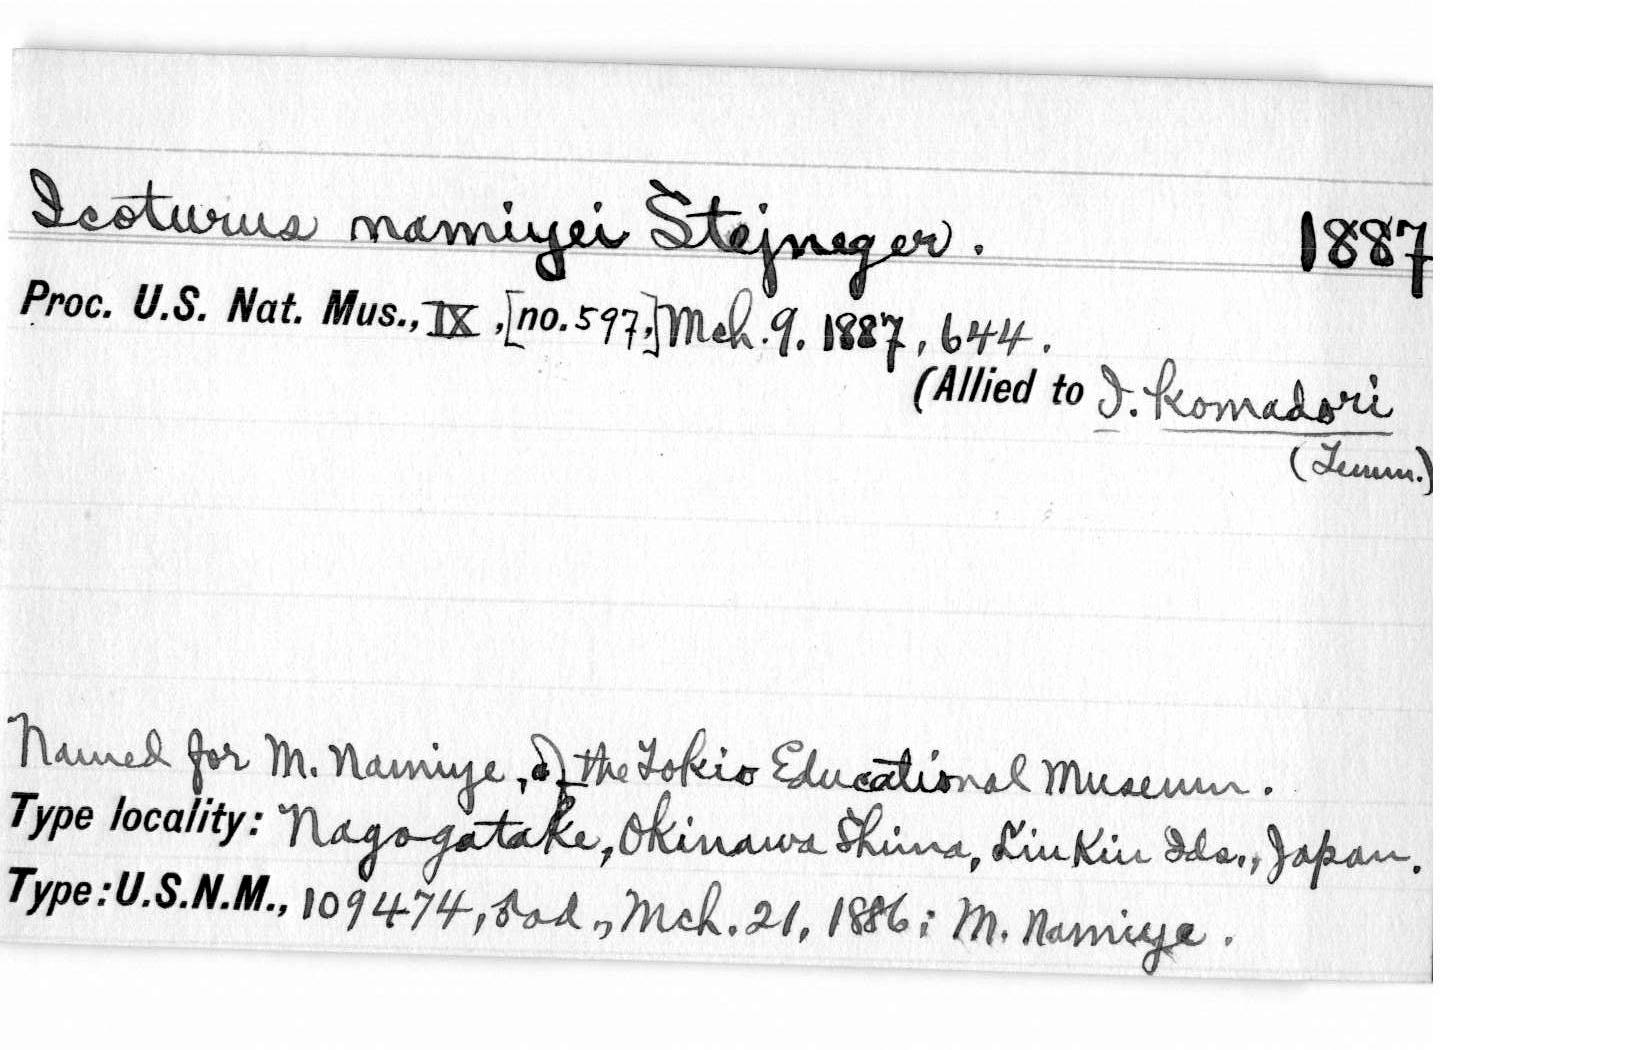 Icoturus namiyei Stejneger. 1887
Proc. U.S. Nat. Mus., IX, [no. 597,] Mch. 9. 1887, 644.
(Allied to I. komadori
(Temm.)
Named for M. Namiye, of the Tokio Educational Museum.
Type locality: Nagogatake, Okinawa Shima, Liu Kiu Ids., Japan.
Type: U.S.N.M., 109474, ♂ ad., Mch. 21, 1886; M. Namiye.